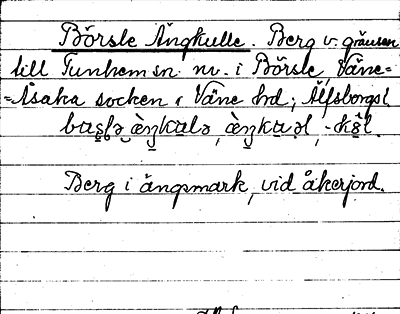 Börsle Ängkulle. Berg v. gränsen
till Tunhem sn. nv. i Börsle, Väne-
=Åsaka socken i Väne hd; Älfsborgs l
Berg i ängsmark, vid åkerjord.